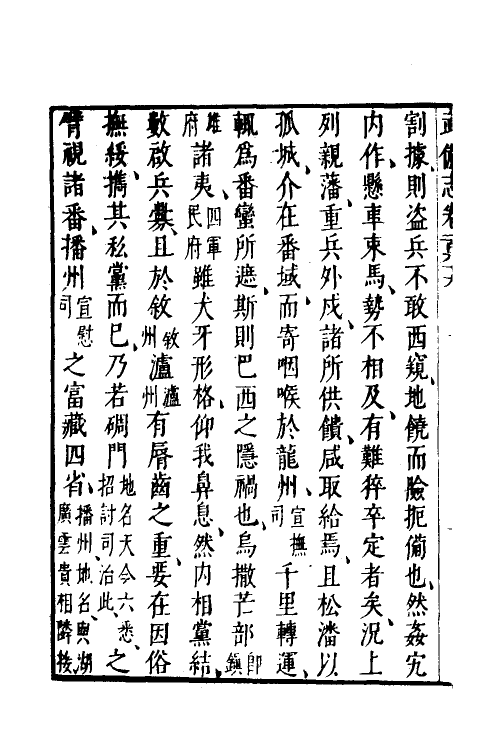 武備志卷二百六
割據、則盗兵不敢西窺、地饒而險扼備也、然姦宄
内作、懸車束馬、勢不相及、有難猝卒定者矣、況上
列親藩、重兵外戍、諸所供饋、咸取給焉、且松潘以
孤城、介在番域、而寄咽喉於龍州、宣撫司千里轉運、
輒爲番蠻所遮、斯則巴西之隱禍也、烏撒芒部即鎮
雄府諸夷、四軍民府雖犬牙形格、仰我鼻息、然内相黨結、
數啟兵釁、且於敘州敘州瀘州瀘州有脣齒之重、要在因俗
撫綏、攜其私黨而已、乃若碉門地名天全六悉、招討司治此、之
臂視諸番、播州宣慰司之富藏四省、播州地名、與湖廣雲貴相隣接